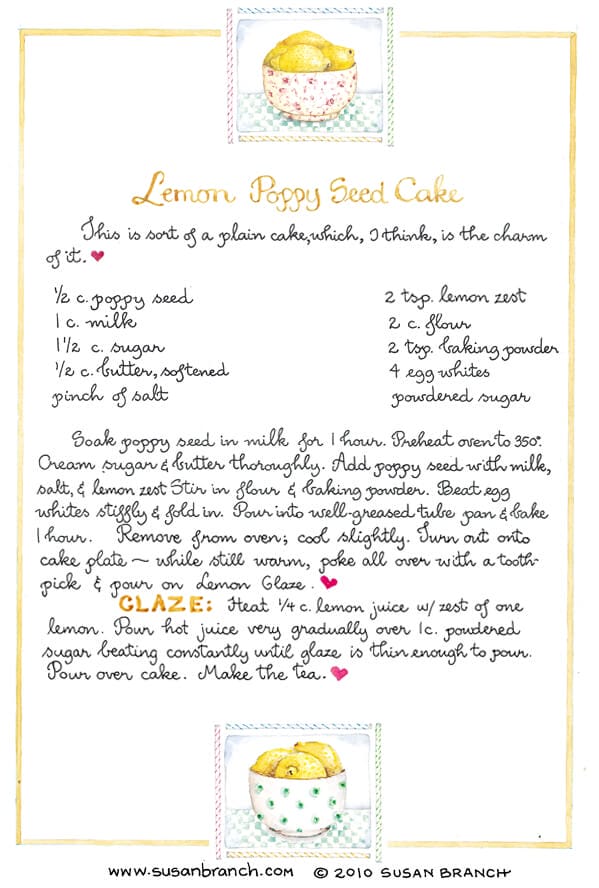 Lemon Poppy Seed Cake
This is sort of a plain cake, which, I think, is the charm
of it. ♥
1/2 c. poppy seed
1 c. milk
1 1/2 c. sugar
1/2 c. butter, softened
pinch of salt
2 tsp. lemon zest
2 c. flour
2 tsp. baking powder
4 egg whites
powdered sugar
Soak poppy seed in milk for 1 hour. Preheat oven to 350°.
Cream sugar & butter thoroughly. Add poppy seed with milk,
salt, & lemon zest Stir in flour & baking powder. Beat egg
whites stiffly & fold in. Pour into well-greased tube pan & bake
1 hour. Remove from oven; cool slightly. Turn out onto
cake plate ~ while still warm, poke all over with a tooth-
pick & pour on Lemon Glaze. ♥
GLAZE: Heat 1/4 c. lemon juice w/ zest of one
lemon. Pour hot juice very gradually over 1c. powdered
sugar beating constantly until glaze is thin enough to pour.
Pour over cake. Make the tea. ♥
www.susanbranch.com © 2010 SUSAN BRANCH